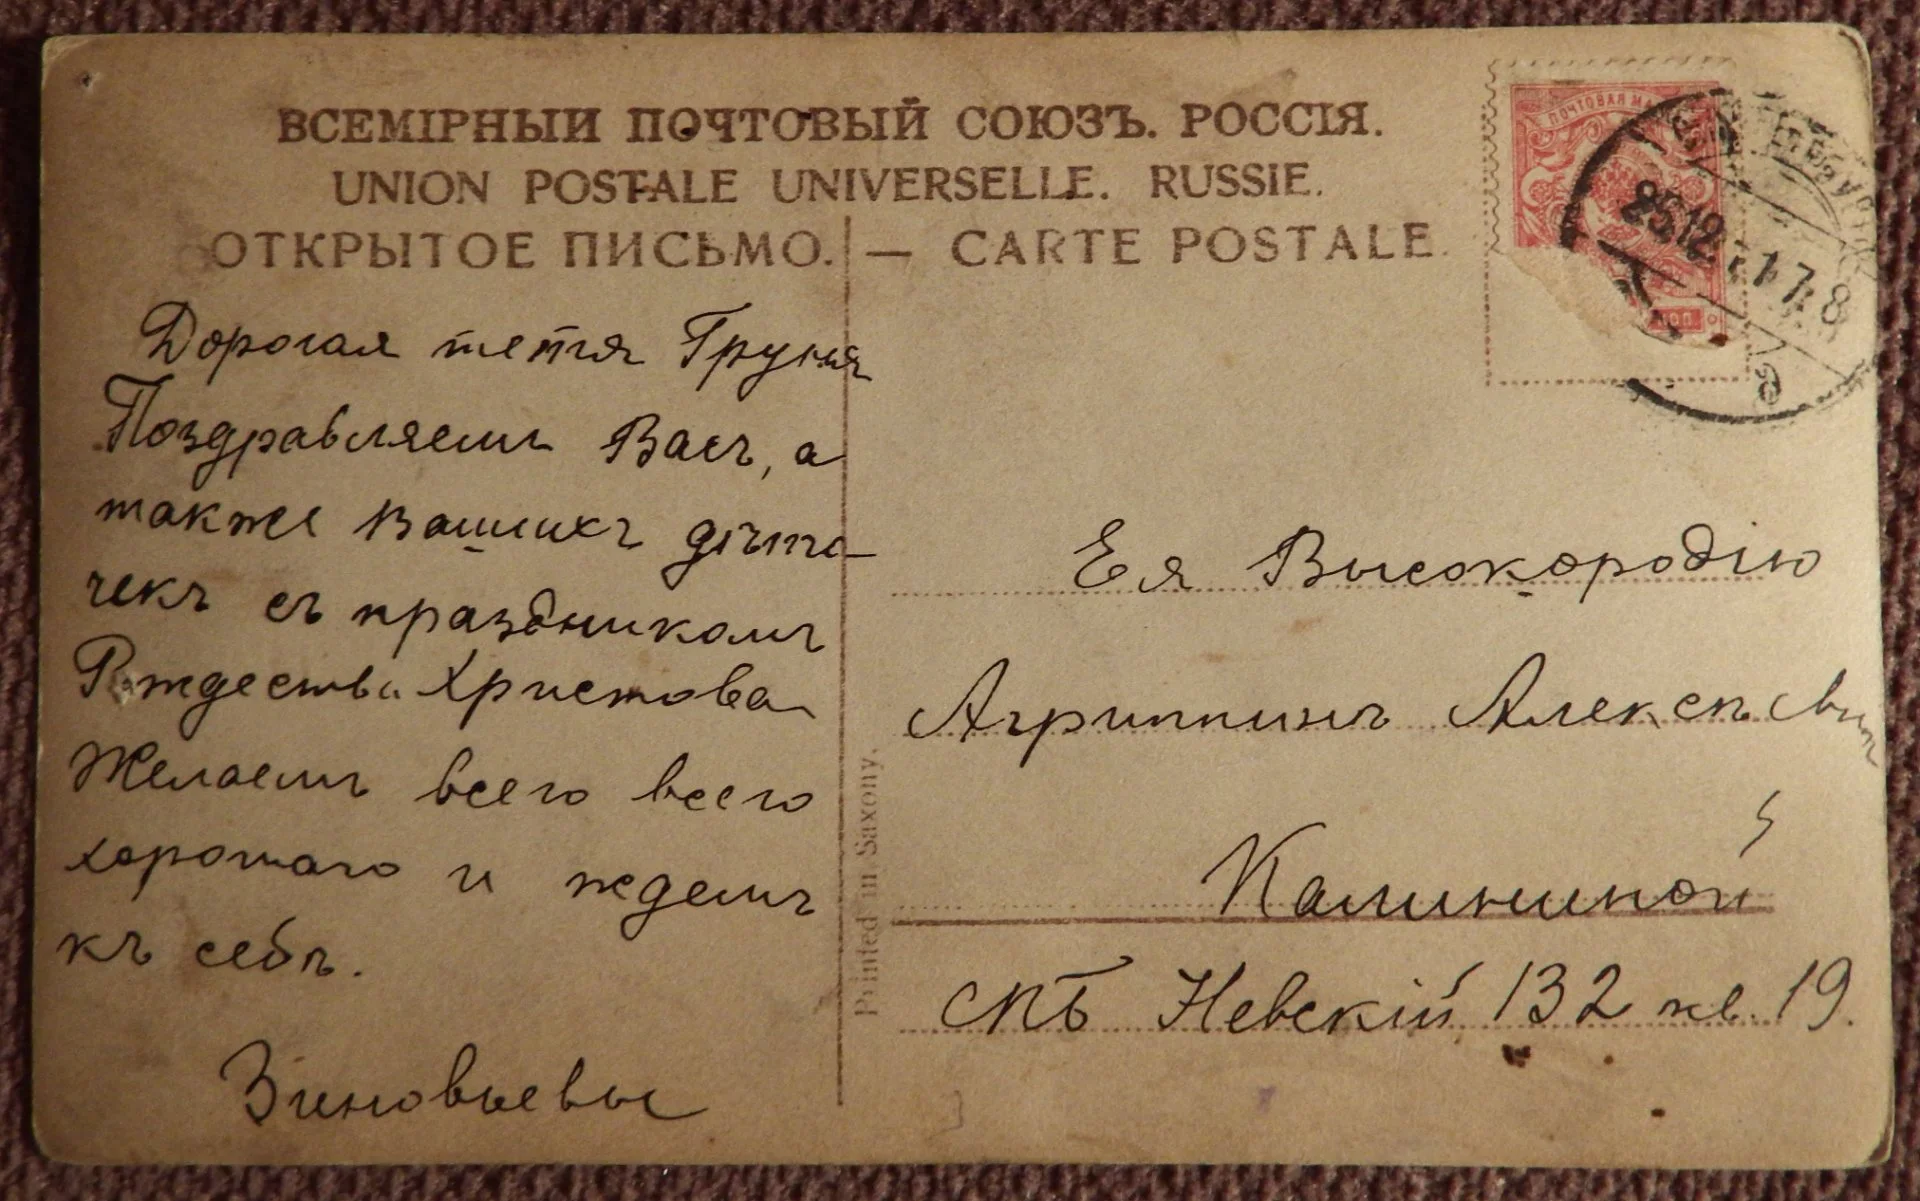 ВСЕМІРНЫИ ПОЧТОВЫЙ СОЮЗЪ. РОССІЯ.
UNION POSTALE UNIVERSELLE. RUSSIE.
ОТКРЫТОЕ ПИСЬМО. — CARTE POSTALE.
ПОЧТОВАЯ МА
КОП.
25 12
Дорогая тетя Груня
Поздравляемъ Васъ, а
также Вашихъ дѣто-
чекъ съ праздникомъ
Рождества Христова
Желаемъ всего всего
хорошаго и ждемъ
къ себѣ.
Зиновьевы
Printed in Saxony.
Ея Высокородію
Агриппинѣ Алексѣевнѣ
Калининой
СПБ Невскій 132 кв. 19.